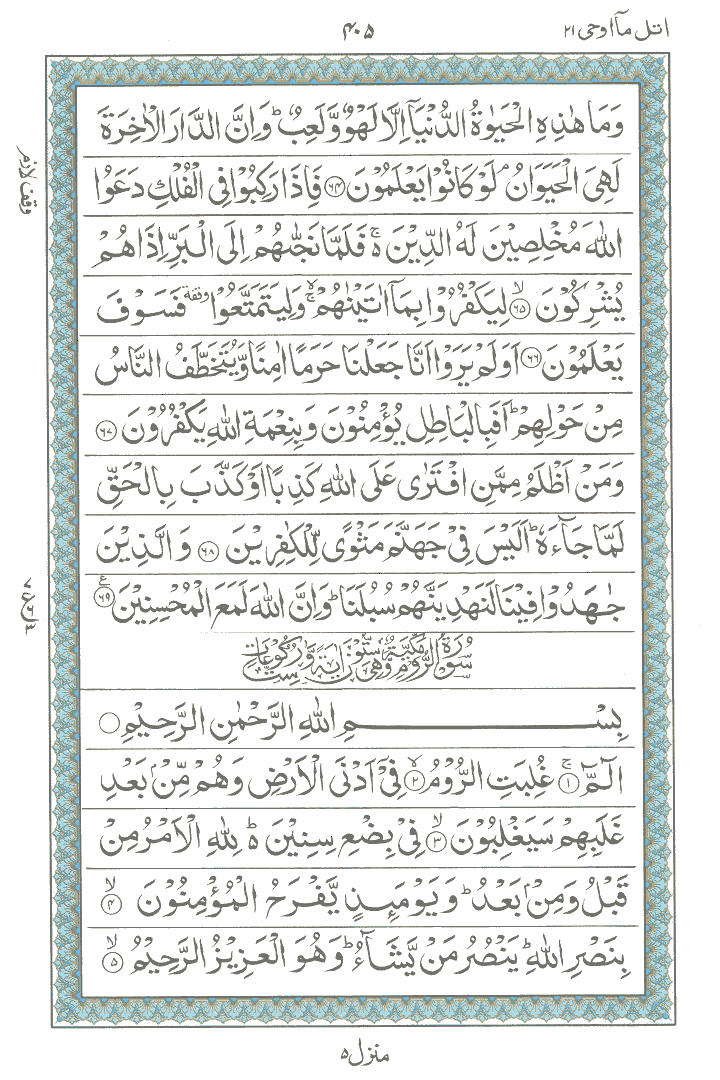 اتل مآ اوحی ۲۱
۴۰۵
وَمَا هٰذِهِ الْحَيٰوةُ الدُّنْيَآ اِلَّا لَهْوٌ وَّلَعِبٌ ؕ وَاِنَّ الدَّارَ الْاٰخِرَةَ
لَهِىَ الْحَيَوَانُ ۘ لَوْ كَانُوْا يَعْلَمُوْنَ ﴿۶۴﴾ فَاِذَا رَكِبُوْا فِى الْفُلْكِ دَعَوُا
اللّٰهَ مُخْلِصِيْنَ لَهُ الدِّيْنَ ۚ۬ فَلَمَّا نَجّٰىهُمْ اِلَى الْبَرِّ اِذَا هُمْ
يُشْرِكُوْنَ ۙ﴿۶۵﴾ لِيَكْفُرُوْا بِمَآ اٰتَيْنٰهُمْ ۚۙ وَلِيَتَمَتَّعُوْا وقفة فَسَوْفَ
يَعْلَمُوْنَ ﴿۶۶﴾ اَوَلَمْ يَرَوْا اَنَّا جَعَلْنَا حَرَمًا اٰمِنًا وَّيُتَخَطَّفُ النَّاسُ
مِنْ حَوْلِهِمْ ؕ اَفَبِالْبَاطِلِ يُؤْمِنُوْنَ وَبِنِعْمَةِ اللّٰهِ يَكْفُرُوْنَ ﴿۶۷﴾
وَمَنْ اَظْلَمُ مِمَّنِ افْتَرٰى عَلَى اللّٰهِ كَذِبًا اَوْ كَذَّبَ بِالْحَقِّ
لَمَّا جَآءَهٗ ؕ اَلَيْسَ فِىْ جَهَنَّمَ مَثْوًى لِّلْكٰفِرِيْنَ ﴿۶۸﴾ وَالَّذِيْنَ
جٰهَدُوْا فِيْنَا لَنَهْدِيَنَّهُمْ سُبُلَنَا ؕ وَاِنَّ اللّٰهَ لَمَعَ الْمُحْسِنِيْنَ ﴿۶۹﴾ ع
سُوْرَةُ الرُّوْمِ مَكِّيَّةٌ وَّهِىَ سِتُّوْنَ اٰيَةً وَّسِتُّ رُكُوْعَاتٍ
بِسْمِ اللّٰهِ الرَّحْمٰنِ الرَّحِيْمِ
الٓمّٓ ۚ﴿۱﴾ غُلِبَتِ الرُّوْمُ ۙ﴿۲﴾ فِىْٓ اَدْنَى الْاَرْضِ وَهُمْ مِّنْۢ بَعْدِ
غَلَبِهِمْ سَيَغْلِبُوْنَ ۙ﴿۳﴾ فِىْ بِضْعِ سِنِيْنَ ؕ لِلّٰهِ الْاَمْرُ مِنْ
قَبْلُ وَمِنْۢ بَعْدُ ؕ وَيَوْمَئِذٍ يَّفْرَحُ الْمُؤْمِنُوْنَ ۙ﴿۴﴾
بِنَصْرِ اللّٰهِ ؕ يَنْصُرُ مَنْ يَّشَآءُ ؕ وَهُوَ الْعَزِيْزُ الرَّحِيْمُ ۙ﴿۵﴾
وقف لازم
منزل ۵